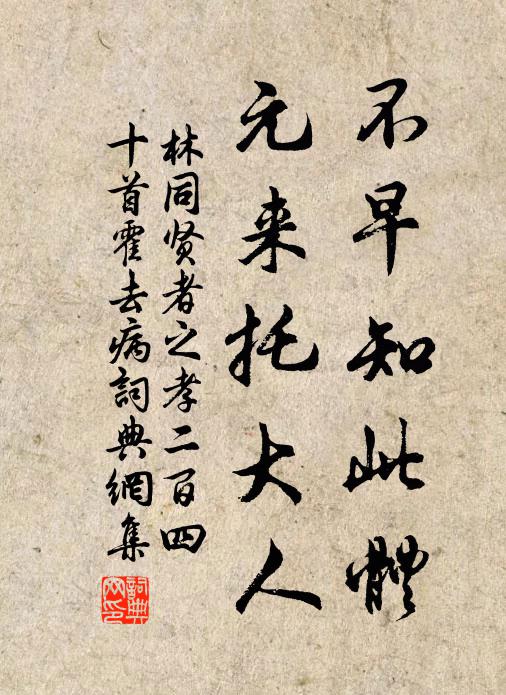 不早知此體
元来托大人
林同贤者之孝二百四
十首霍去病詞典網集